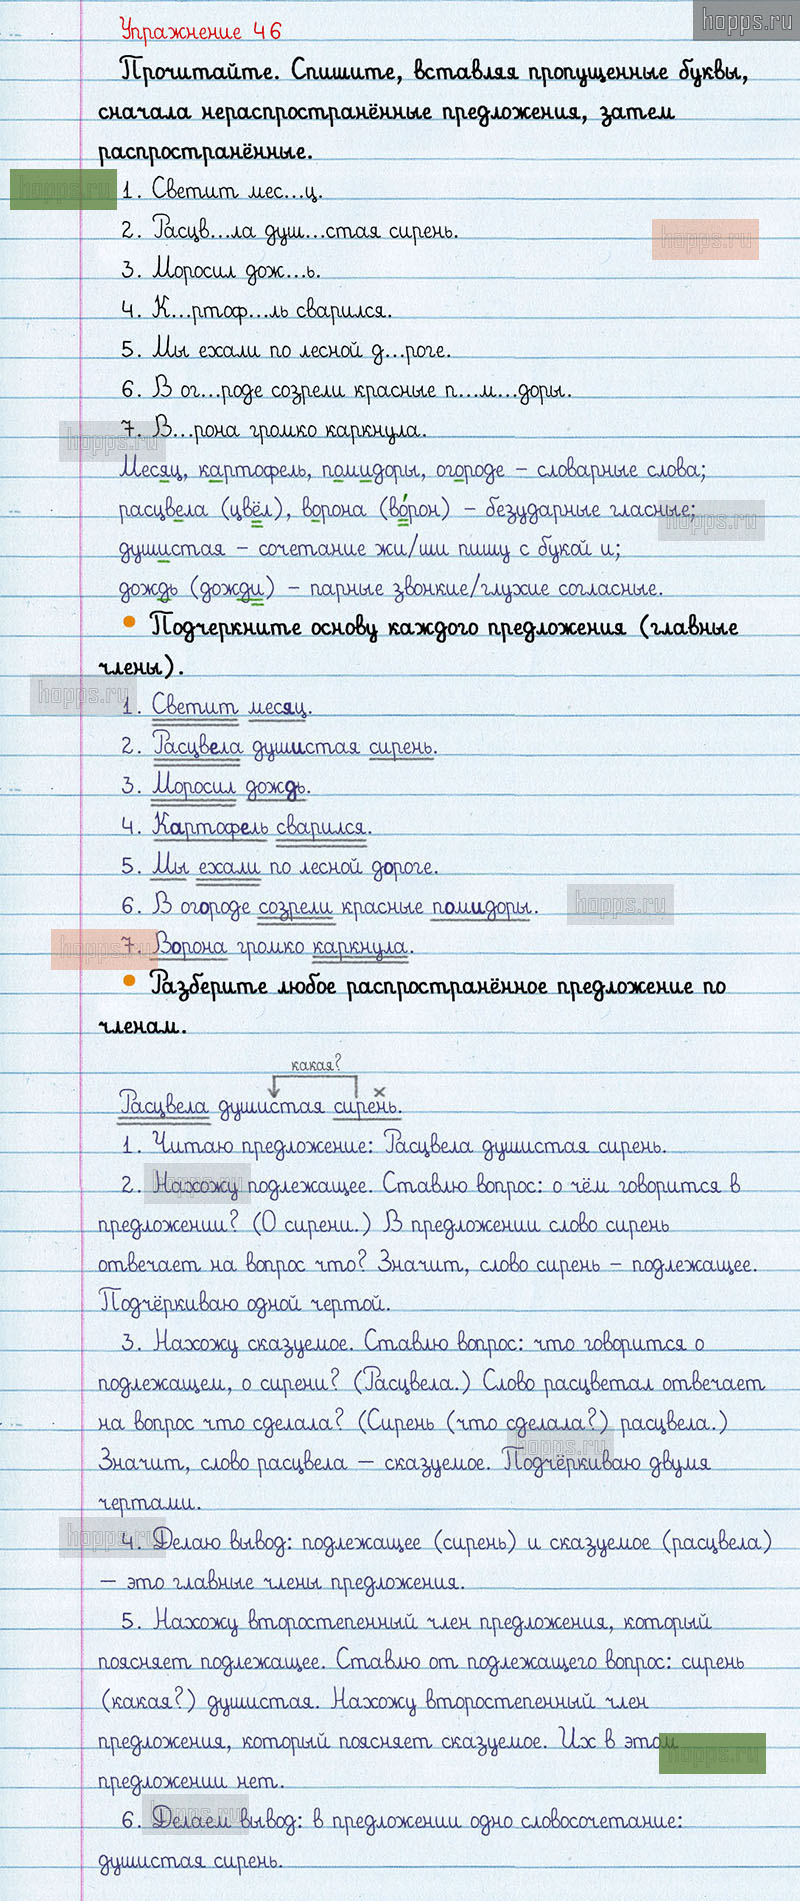 hopps.ru
Упражнение 46
Прочитайте. Спишите, вставляя пропущенные буквы,
сначала нераспространённые предложения, затем
распространённые.
hopps.ru
1. Светит мес...ц.
2. Расцв...ла душ...стая сирень.
hopps.ru
3. Моросил дож...ь.
4. К...ртоф...ль сварился.
5. Мы ехали по лесной д...роге.
6. В ог...роде созрели красные п...м...доры.
7. В...рона громко каркнула.
hopps.ru
Месяц, картофель, помидоры, огороде – словарные слова;
расцвела (цвёл), ворона (во́рон) – безударные гласные;
hopps.ru
душистая – сочетание жи/ши пишу с букой и;
дождь (дожди) – парные звонкие/глухие согласные.
• Подчеркните основу каждого предложения (главные
члены).
hopps.ru
1. Светит месяц.
2. Расцвела душистая сирень.
3. Моросил дождь.
4. Картофель сварился.
5. Мы ехали по лесной дороге.
6. В огороде созрели красные помидоры.
hopps.ru
7. Ворона громко каркнула.
hopps.ru
• Разберите любое распространённое предложение по
членам.
какая?
×
Расцвела душистая сирень.
1. Читаю предложение: Расцвела душистая сирень.
2. Нахожу подлежащее. Ставлю вопрос: о чём говорится в
hopps.ru
предложении? (О сирени.) В предложении слово сирень
отвечает на вопрос что? Значит, слово сирень – подлежащее.
Подчёркиваю одной чертой.
3. Нахожу сказуемое. Ставлю вопрос: что говорится о
подлежащем, о сирени? (Расцвела.) Слово расцветал отвечает
на вопрос что сделала? (Сирень (что сделала?) расцвела.)
hopps.ru
Значит, слово расцвела – сказуемое. Подчёркиваю двумя
чертами.
hopps.ru
4. Делаю вывод: подлежащее (сирень) и сказуемое (расцвела)
– это главные члены предложения.
5. Нахожу второстепенный член предложения, который
поясняет подлежащее. Ставлю от подлежащего вопрос: сирень
(какая?) душистая. Нахожу второстепенный член
предложения, который поясняет сказуемое. Их в этом
hopps.ru
предложении нет.
6. Делаем вывод: в предложении одно словосочетание:
hopps.ru
душистая сирень.